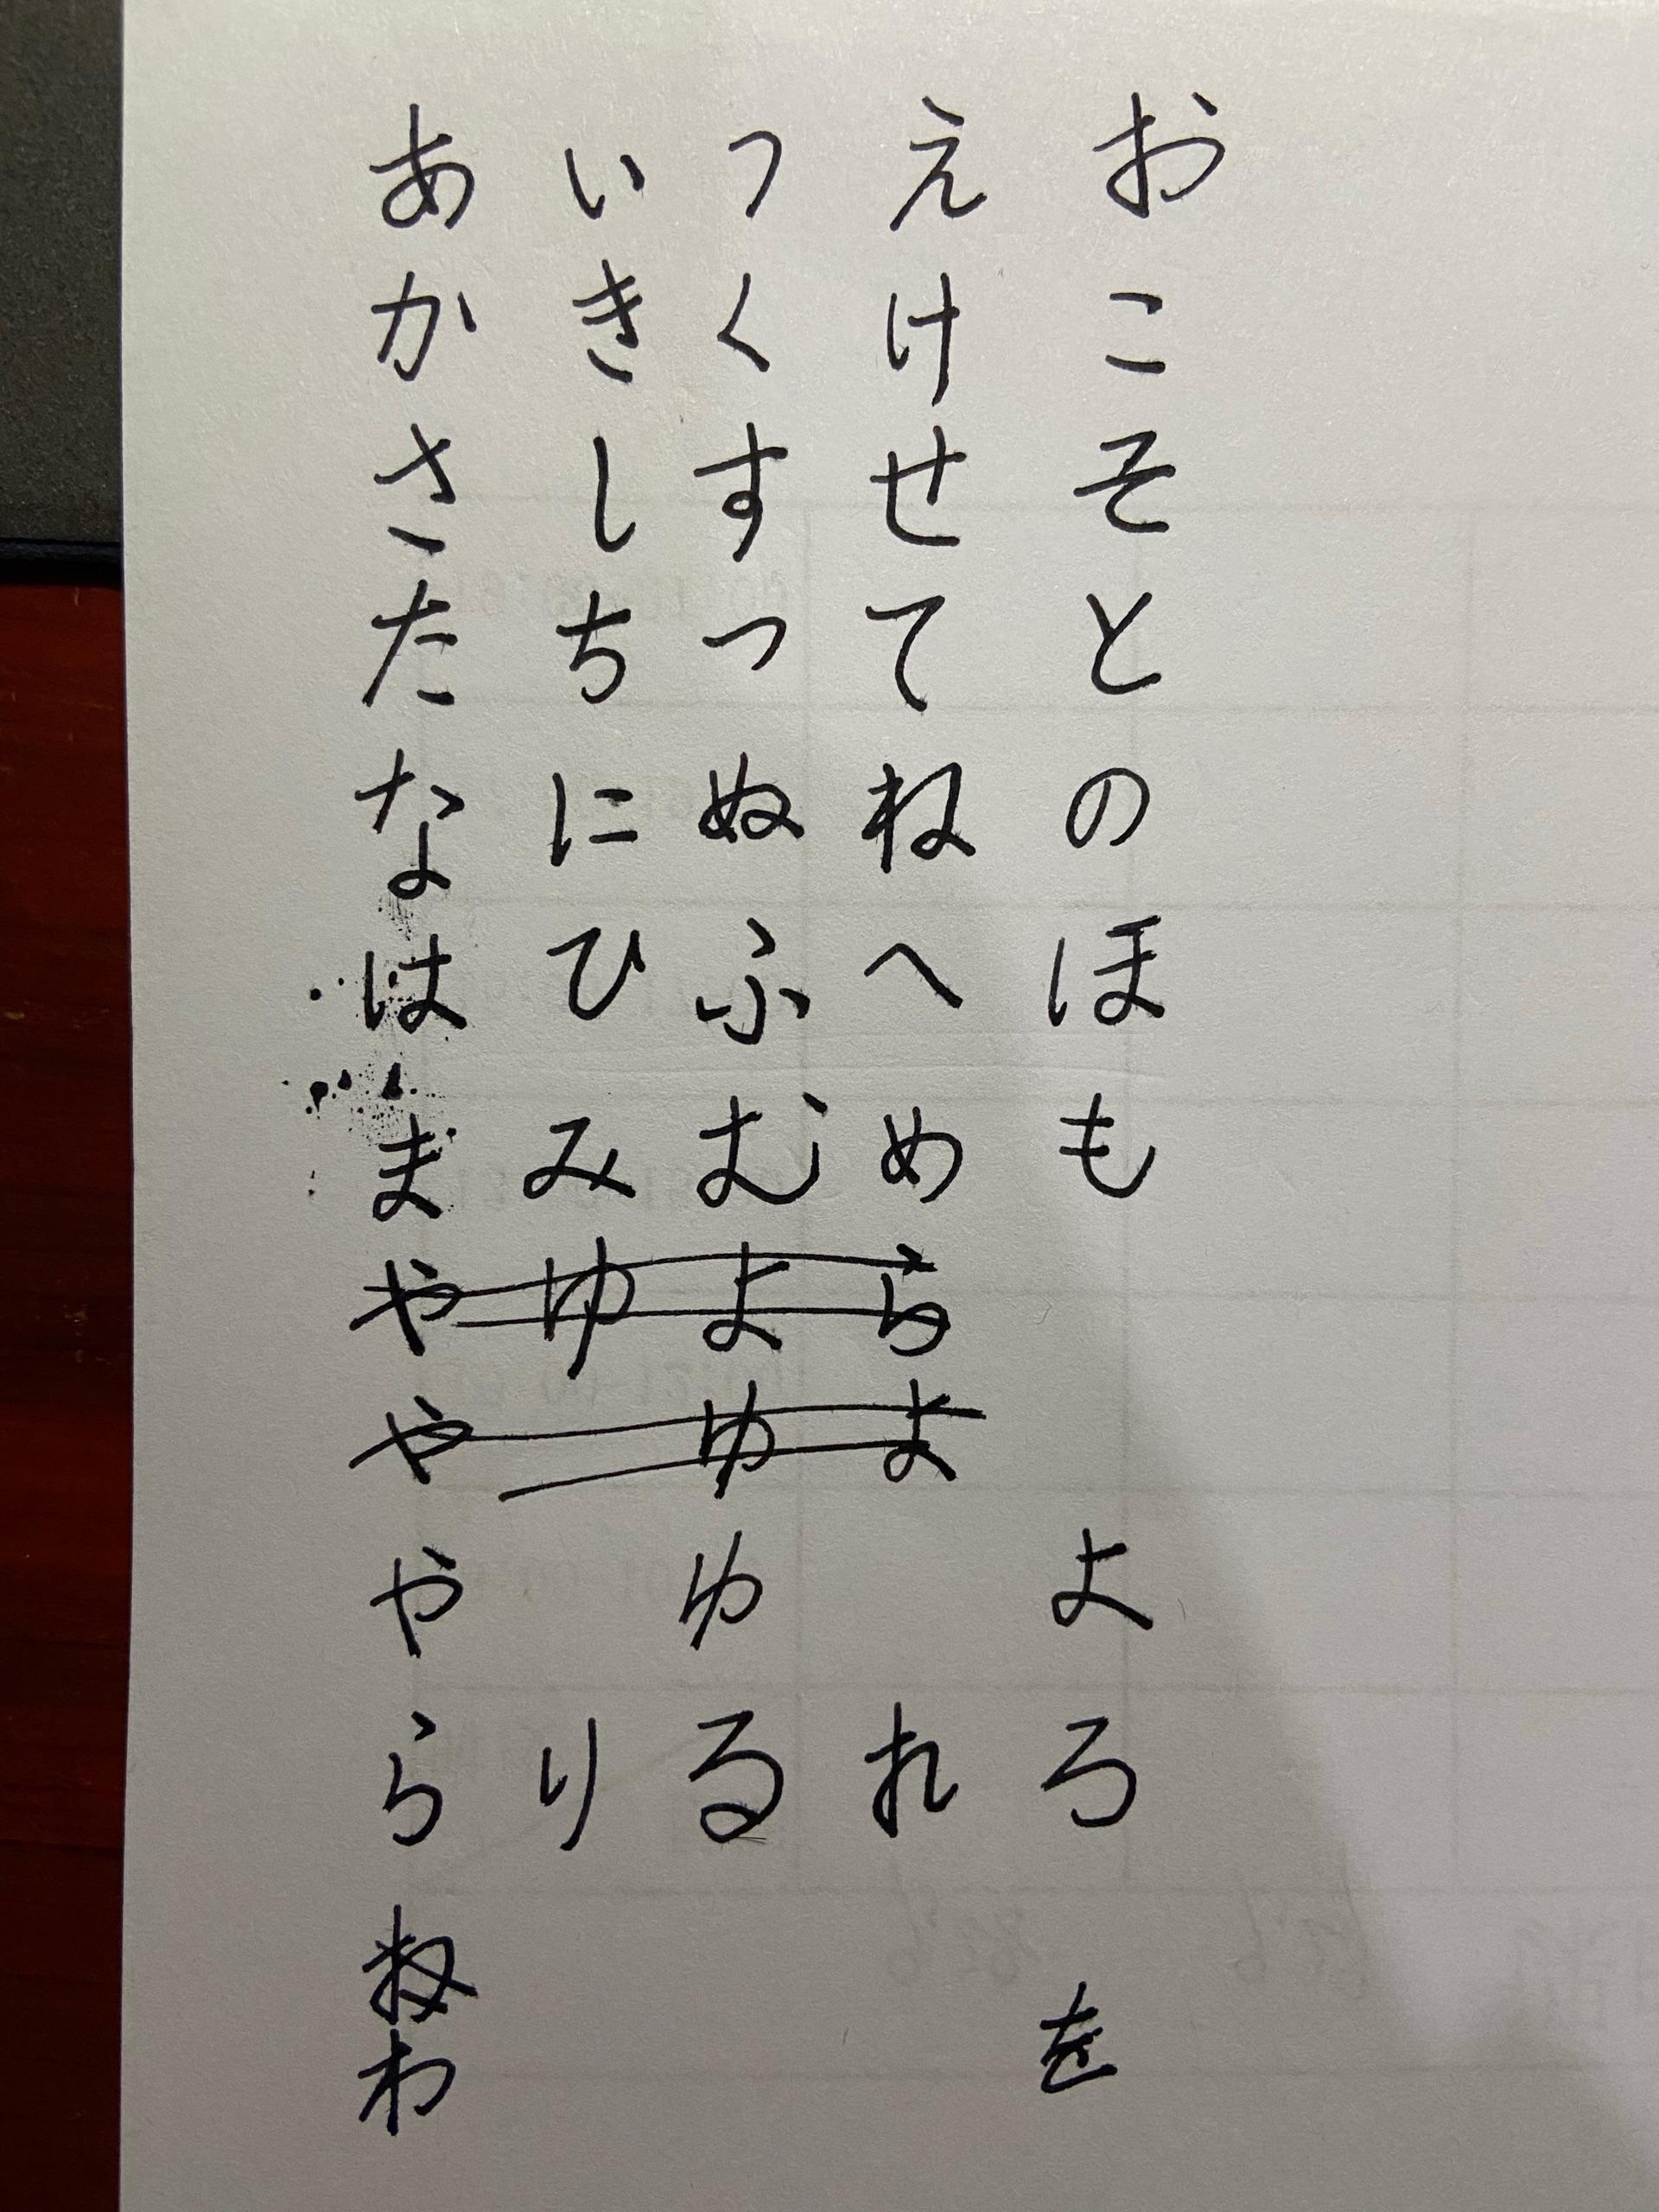 あ い う え お
か き く け こ
さ し す せ そ
た ち つ て と
な に ぬ ね の
は ひ ふ へ ほ
ま み む め も
や ゆ よ ら
や ゆ よ
や ゆ よ
ら り る れ ろ
わ を